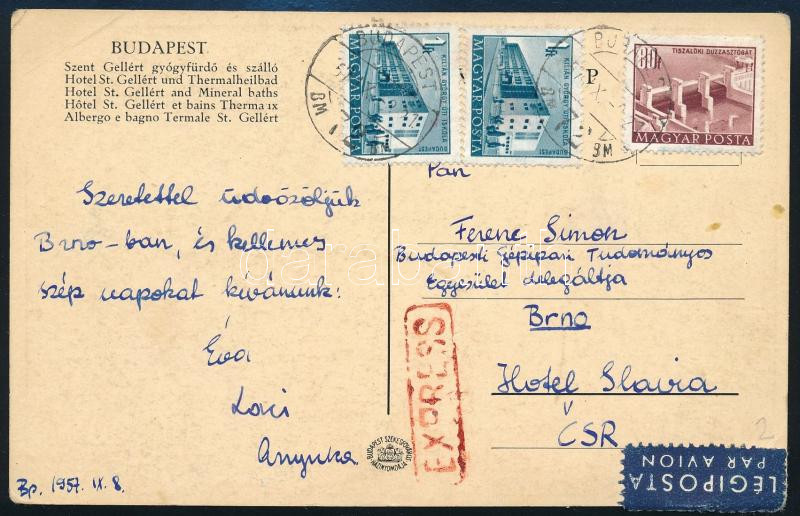 BUDAPEST
Szent Gellért gyógyfürdő és szálló
Hotel St. Gellért und Thermalheilbad
Hotel St. Gellért and Mineral baths
Hôtel St. Gellért et bains Thermaux
Albergo e bagno Termale St. Gellért
1 Ft
KILIÁN GYÖRGY ÚTI ISKOLA
BUDAPEST
MAGYAR POSTA
1 Ft
KILIÁN GYÖRGY ÚTI ISKOLA
BUDAPEST
MAGYAR POSTA
80 f
TISZALÖKI DUZZASZTÓGÁT
MAGYAR POSTA
BUDAPEST
P
Szeretettel üdvözöljük
Brno-ban, és kellemes
szép napokat kívánunk:
Éva
Laci
Anyuka
Bp. 1957. IX. 8.
Pan
Ferenc Simon
Budapesti Gépipari Tudományos
Egyesület delegáltja
Brno
Hotel Slavia
ČSR
EXPRESS
LÉGIPOSTA
PAR AVION
2
darabanth